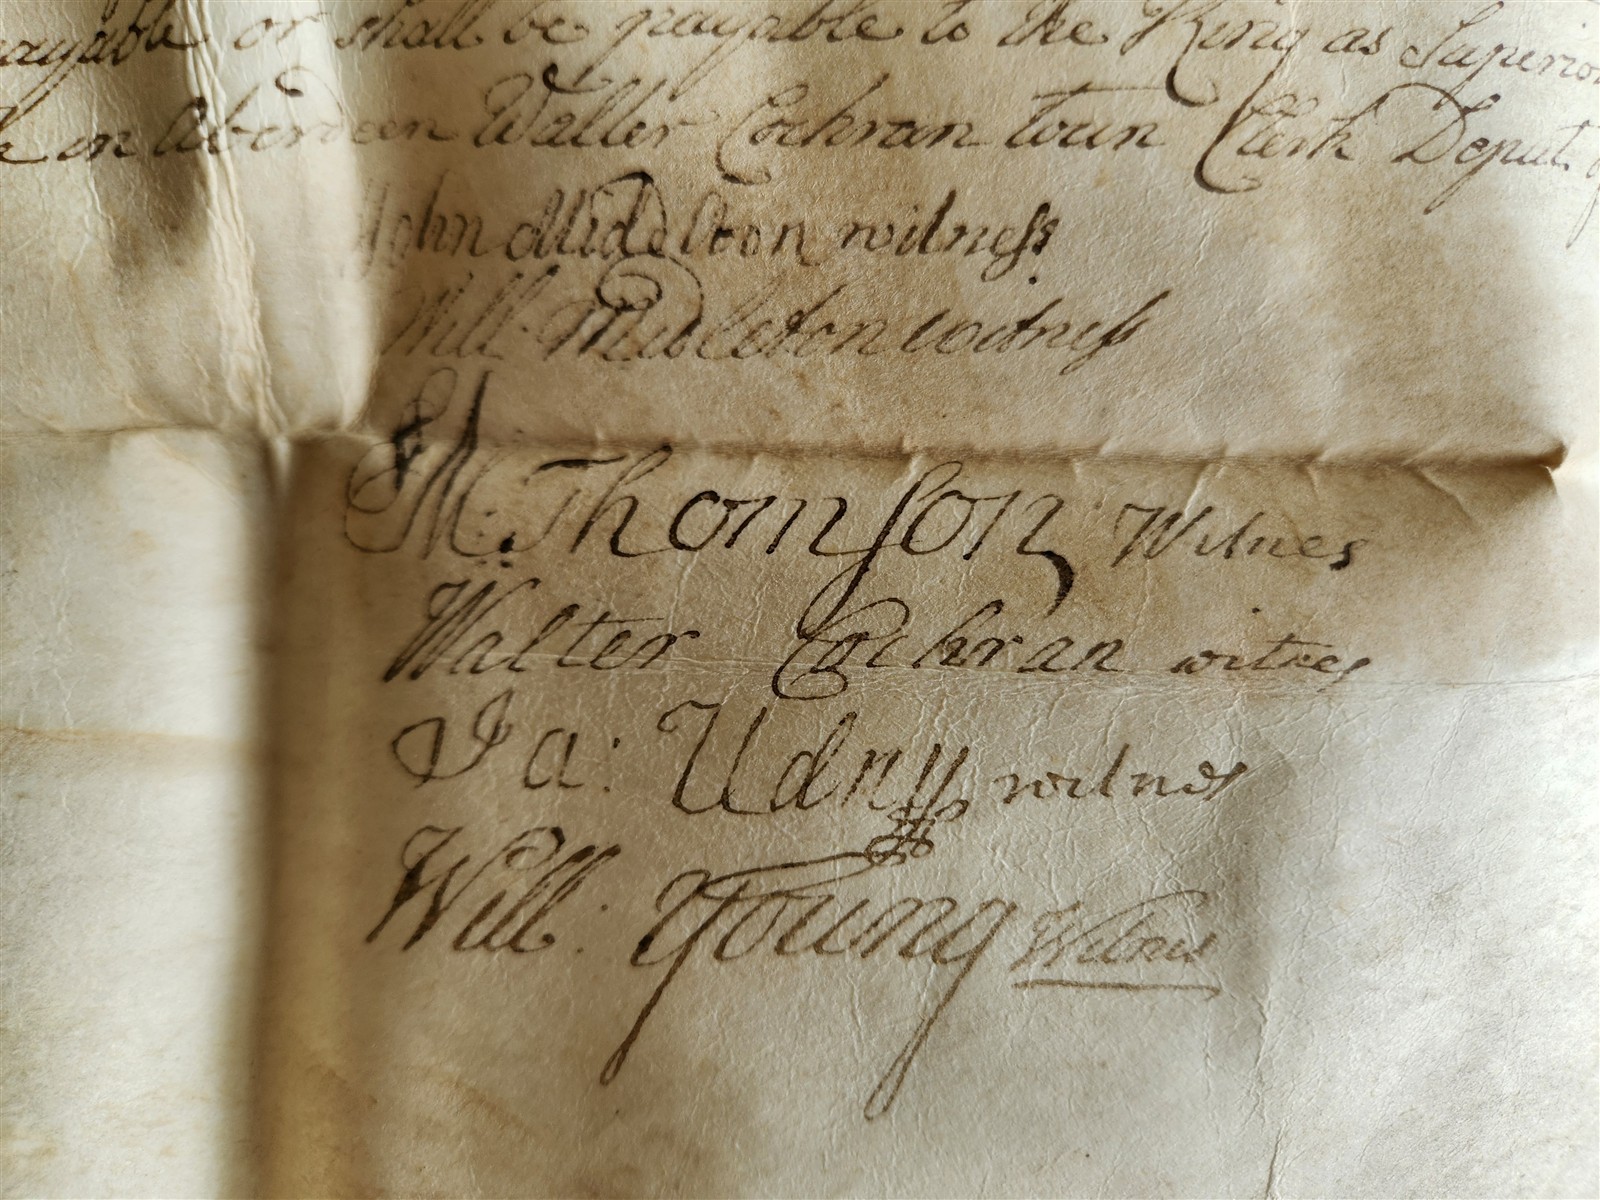 payable or shall be payable to the King as Superior
in Aberdeen Walter Cochran toun Clerk Deput
John Middelton witness
Will: Midleton witness
M: Thomson Witnes
Walter Cochran witnes
Ja: Udny witnes
Will: Young Witnes